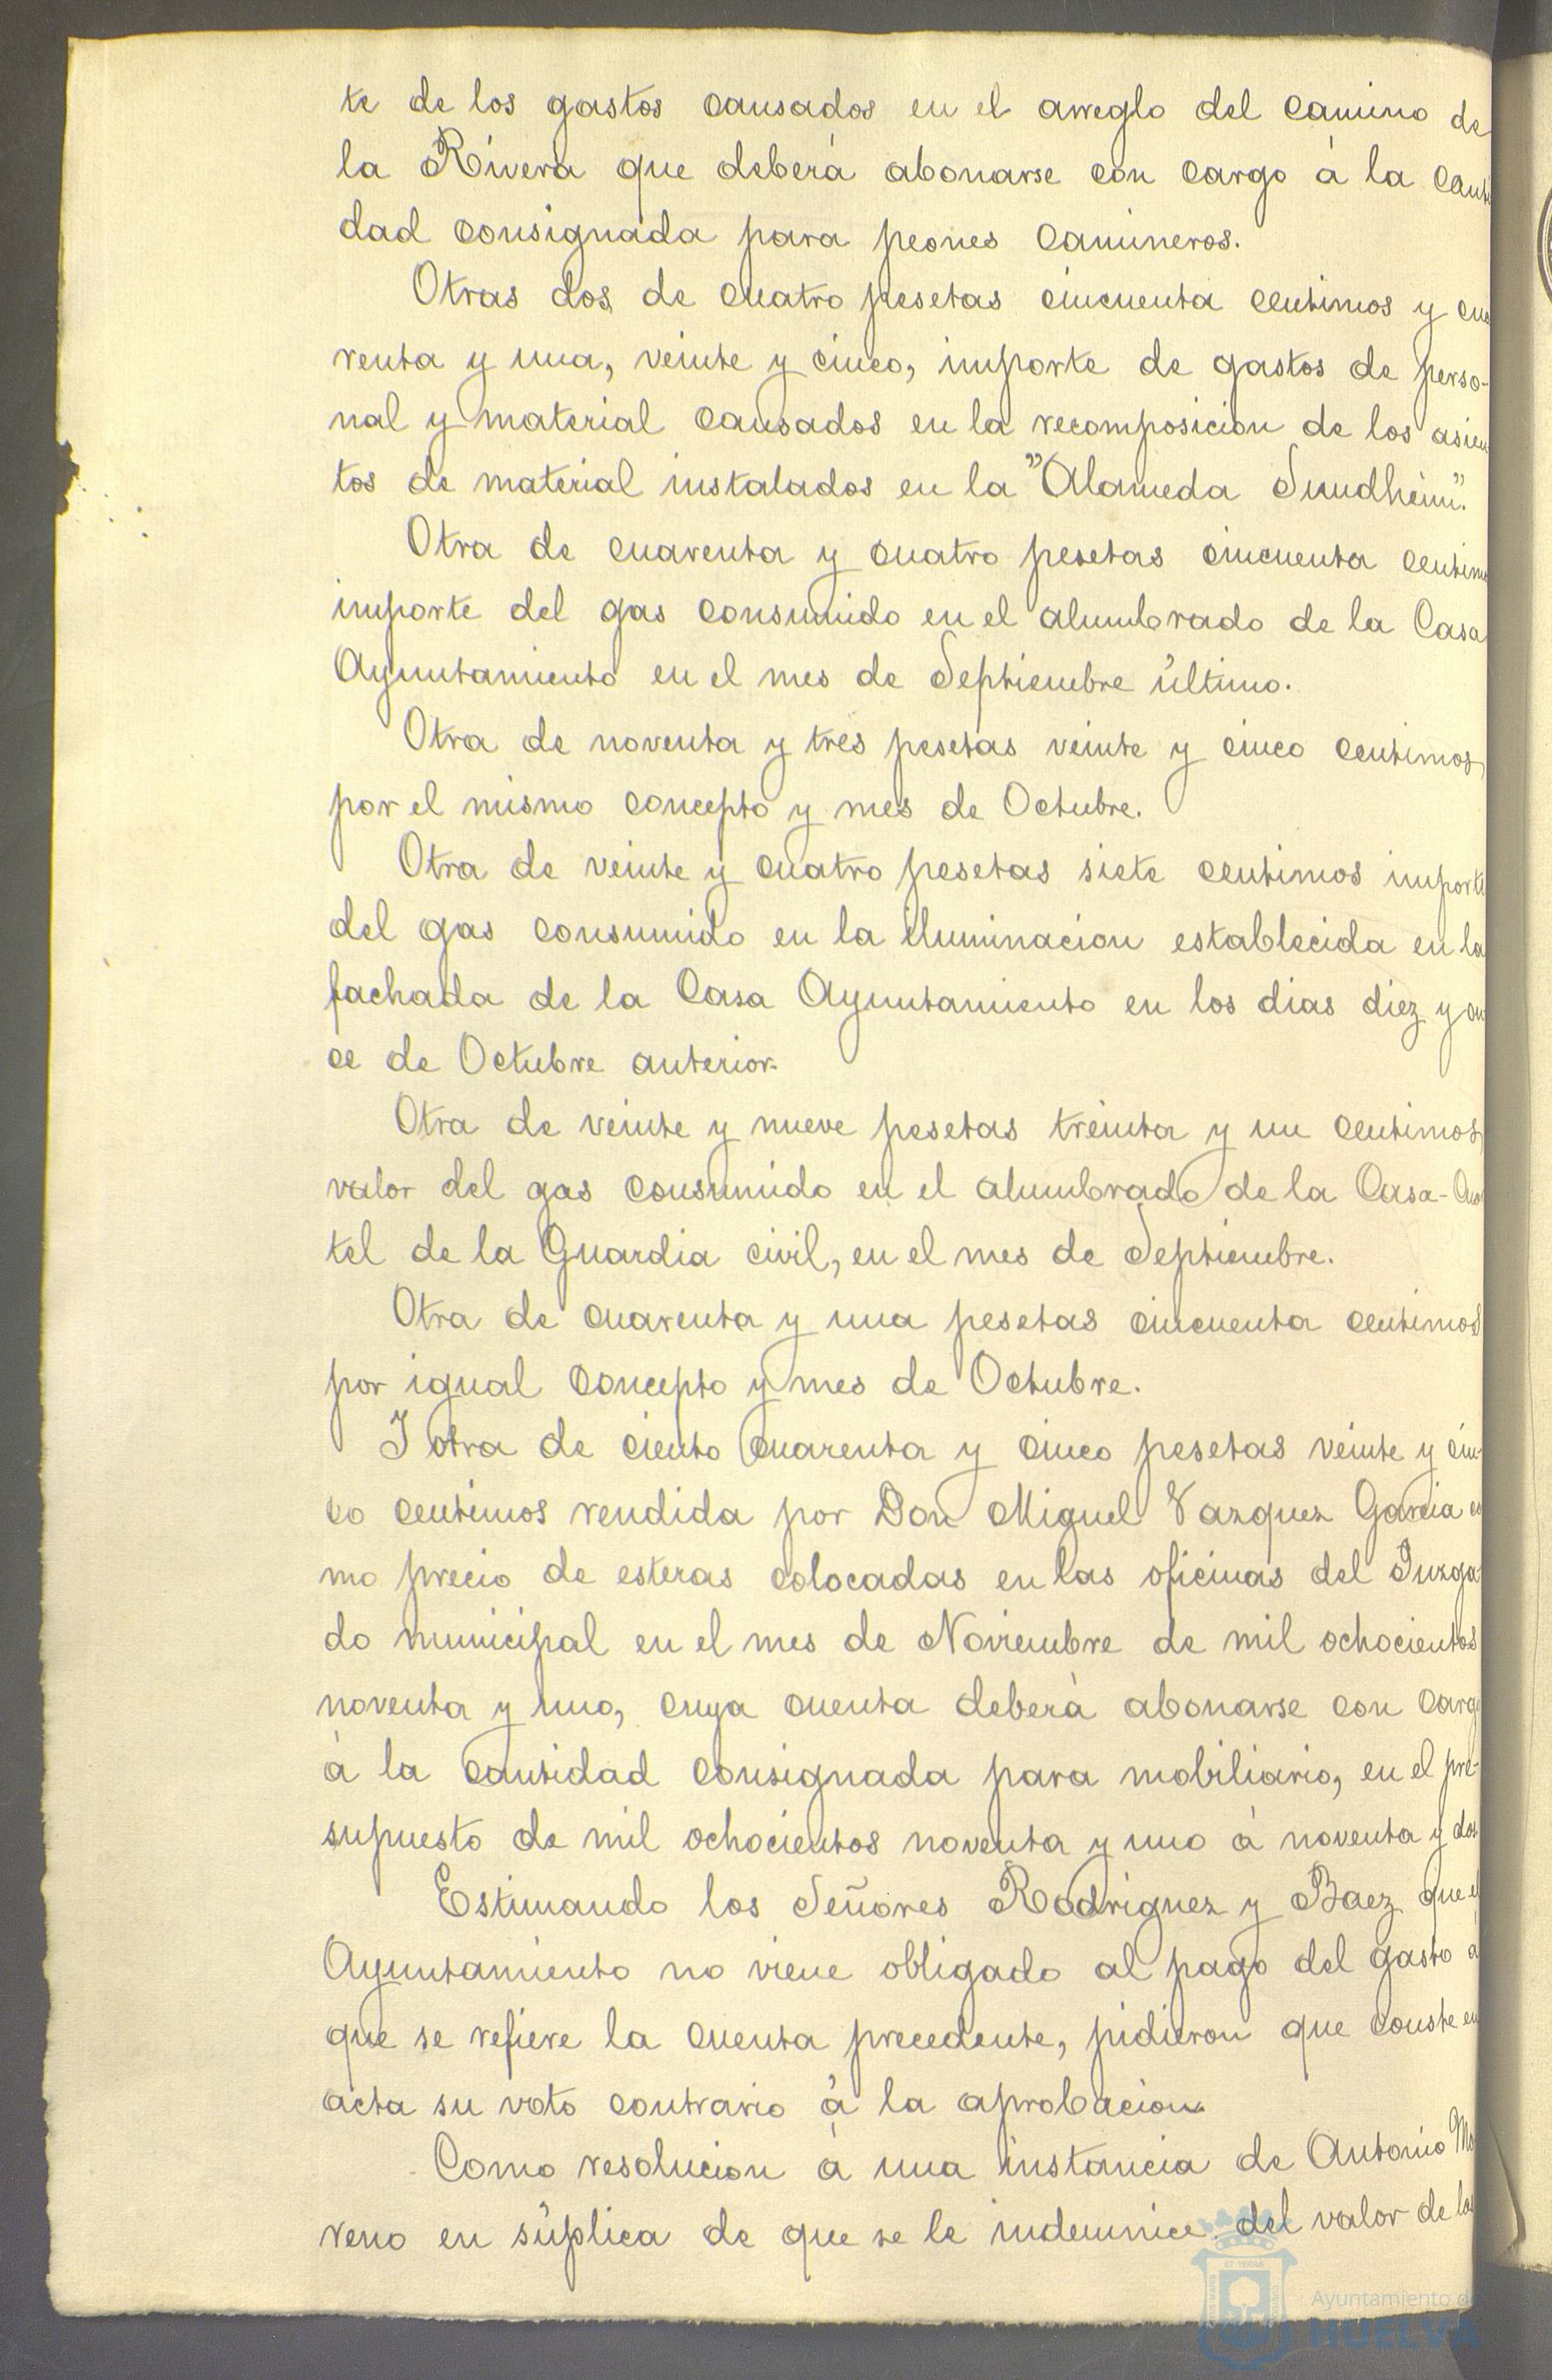 te de los gastos causados en el arreglo del camino de
la Rivera que deberá abonarse con cargo á la canti
dad consignada para peones camineros.
Otras dos de cuatro pesetas cincuenta centimos y cua
renta y una, veinte y cinco, importe de gastos de perso-
nal y material causados en la recomposicion de los asien
tos de material instalados en la "Alameda Sundheim".
Otra de cuarenta y cuatro pesetas cincuenta centimos
importe del gas consumido en el alumbrado de la Casa
Ayuntamiento en el mes de Septiembre último.
Otra de noventa y tres pesetas veinte y cinco centimos,
por el mismo concepto y mes de Octubre.
Otra de veinte y cuatro pesetas siete centimos importe
del gas consumido en la iluminacion establecida en la
fachada de la Casa Ayuntamiento en los dias diez y on
ce de Octubre anterior.
Otra de veinte y nueve pesetas treinta y un centimos,
valor del gas consumido en el alumbrado de la Casa-Cuar
tel de la Guardia civil, en el mes de Septiembre.
Otra de cuarenta y una pesetas cincuenta centimos
por igual concepto y mes de Octubre.
I otra de ciento cuarenta y cinco pesetas veinte y cin-
co centimos rendida por Don Miguel Vazquez Garcia co
mo precio de esteras colocadas en las oficinas del Juzga
do municipal en el mes de Noviembre de mil ochocientos
noventa y uno, cuya cuenta deberá abonarse con cargo
á la cantidad consignada para mobiliario, en el pre-
supuesto de mil ochocientos noventa y uno á noventa y dos.
Estimando los Señores Rodriguez y Baez que el
Ayuntamiento no viene obligado al pago del gasto á
que se refiere la cuenta precedente, pidieron que conste en
acta su voto contrario á la aprobacion.
Como resolucion á una instancia de Antonio Mo
reno en súplica de que se le indemnice del valor de los
Ayuntamiento de
HUELVA